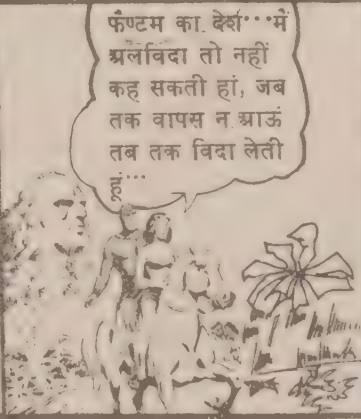 फॅण्टम का देश···में
अलविदा तो नहीं
कह सकती हां, जब
तक वापस न आऊं
तब तक विदा लेती
हूं···